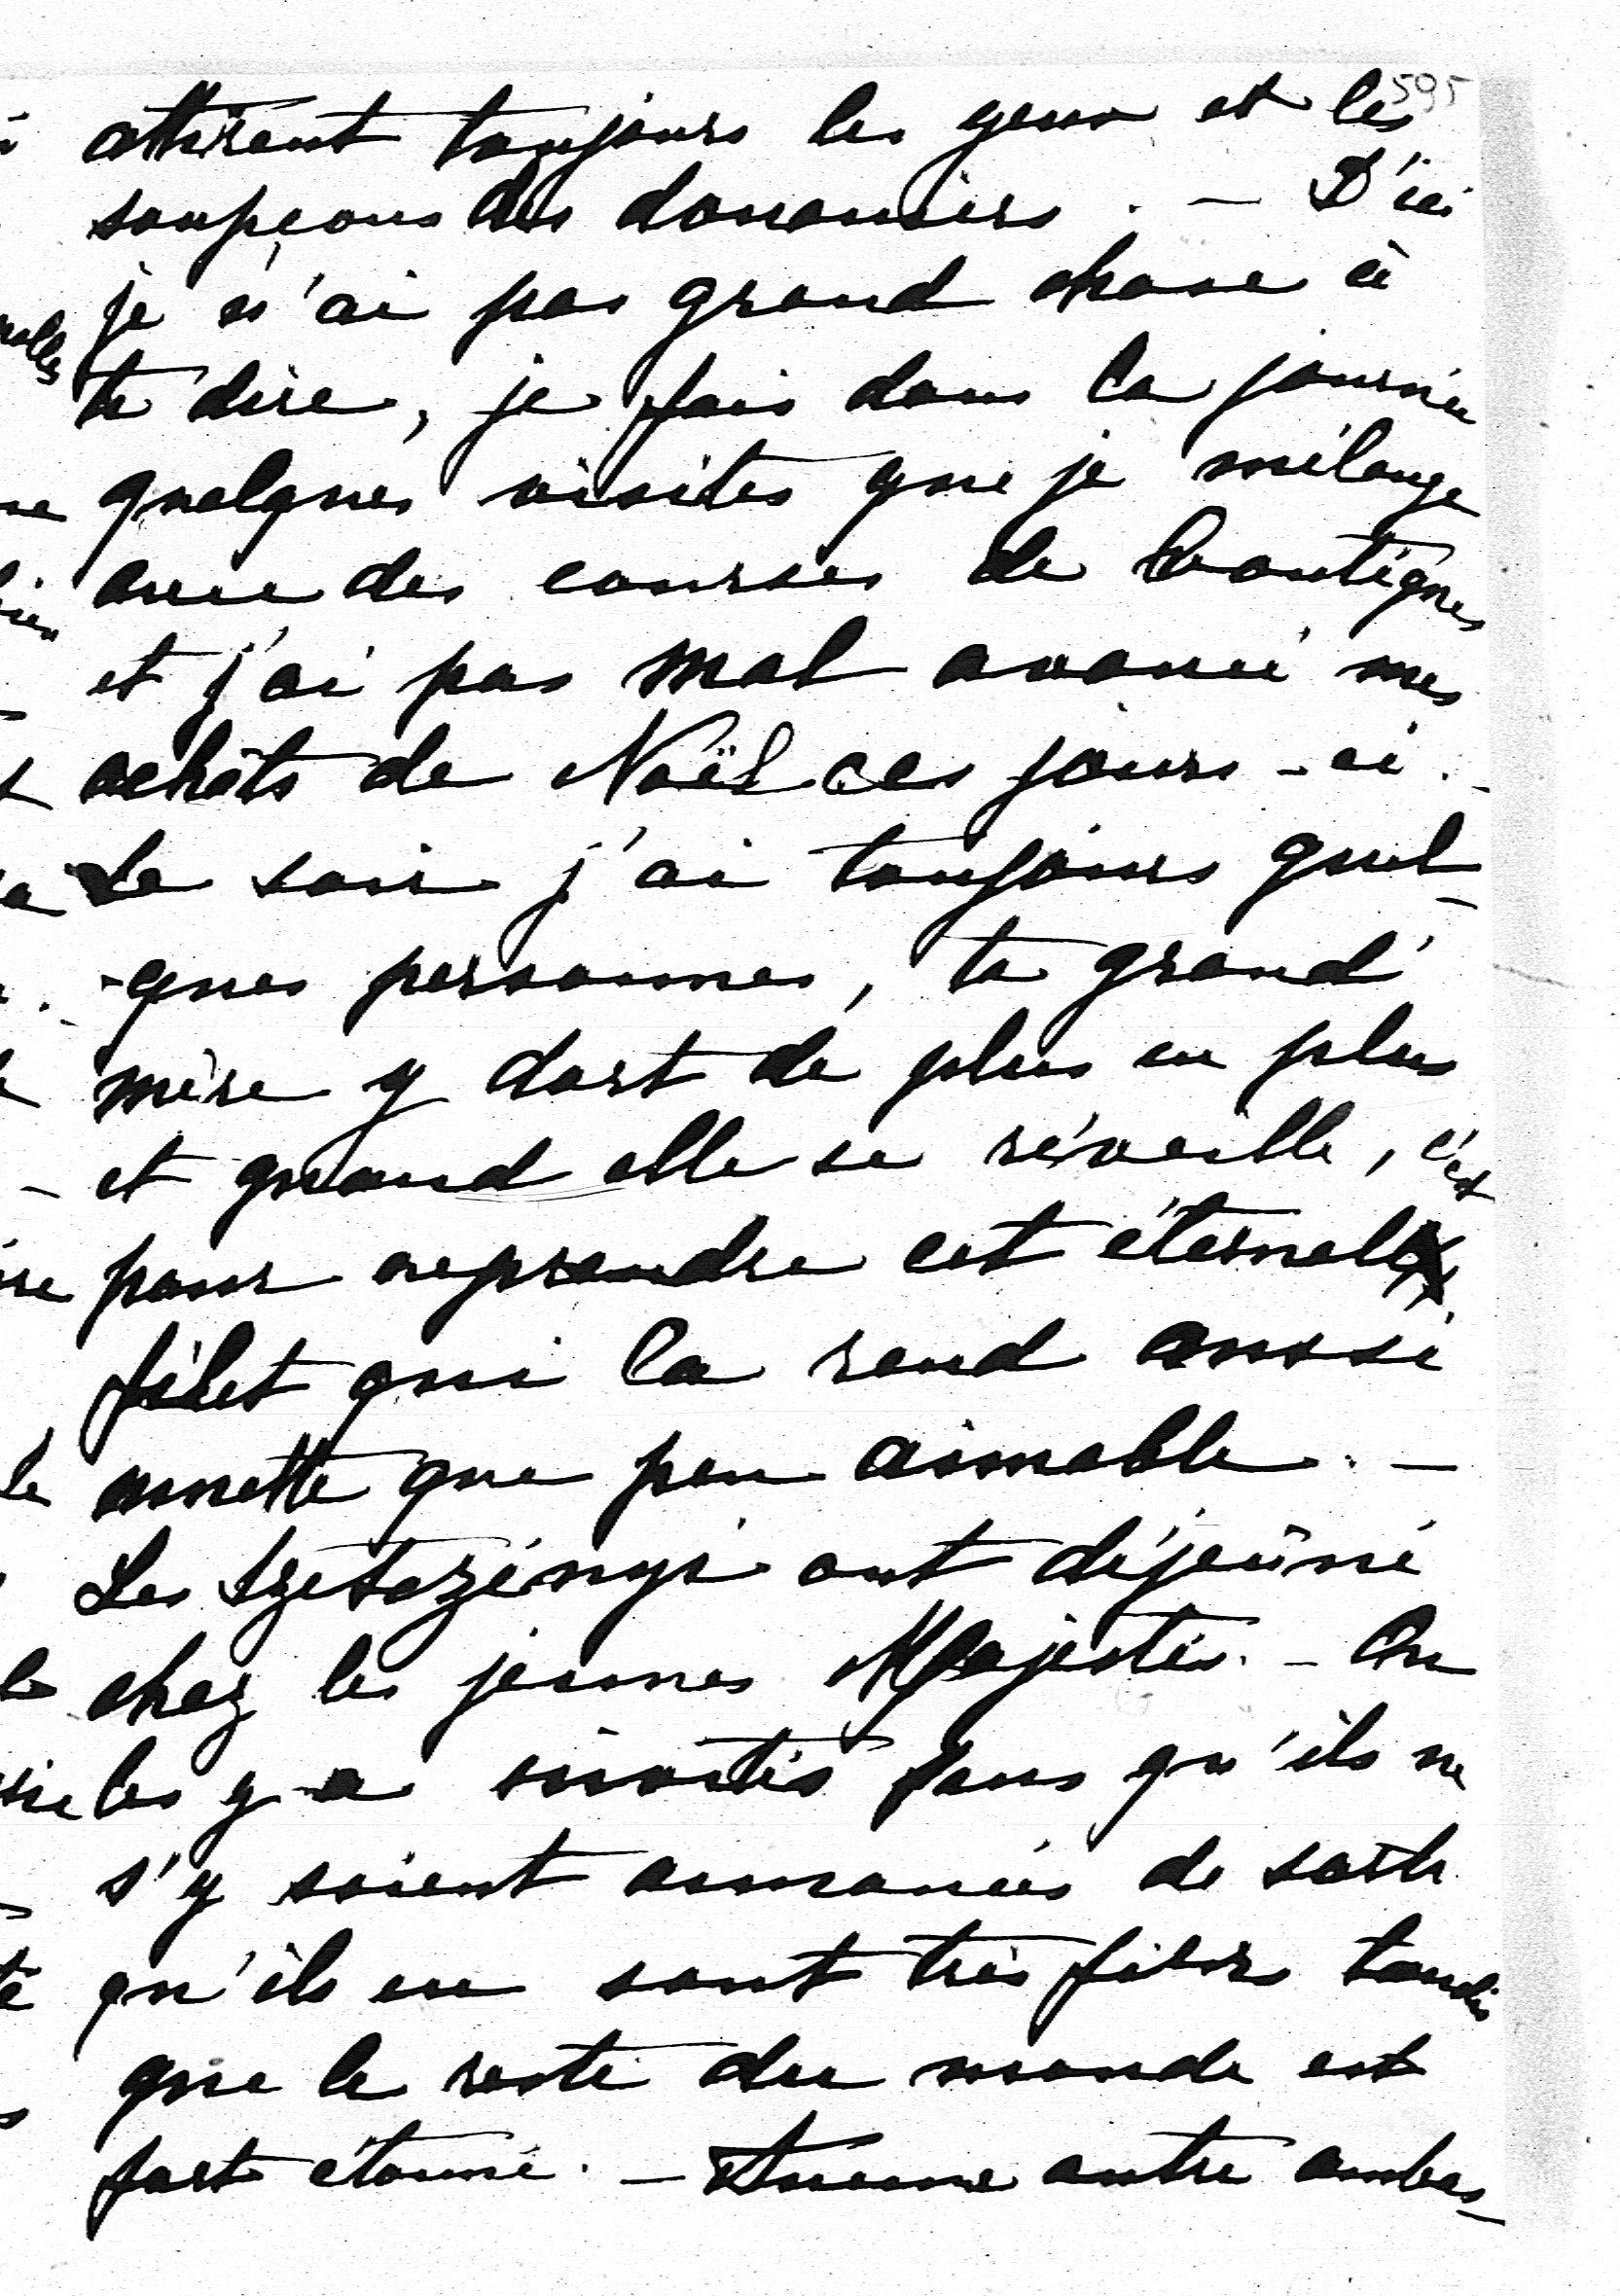 595
attirent toujours les yeux et les
soupçons des douaniers. - D'ici
je n'ai pas grand chose à
te dire, je fais dans la journée
quelques visites que je mélange
avec des courses de boutiques
et j'ai pas mal avancé mes
achâts de Noël ces jours-ci. -
Le soir j'ai toujours quel-
-ques personnes, ta grand'
mère y dort de plus en plus
et quand elle se réveille, c'est
pour reprendre cet éternel
filet qui la rend aussi
muette que peu aimable. -
Les Szetszényi ont déjeûné
chez les jeunes Majestés. - On
les y a invités sans qu'ils ne
s'y soient annoncés de sorte
qu'ils en sont très fiers tandis
que le reste du monde est
fort étonné. - Aucune autre ambas-